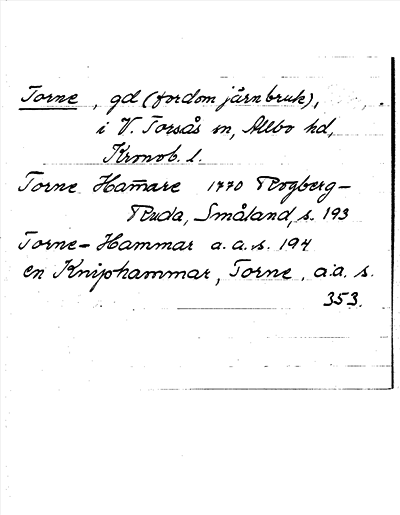 Torne, gd (fordom järnbruk),
i V. Torsås sn, Allbo hd,
Kronob. l.
Torne Ham̄are 1770 Rogberg-
Ruda, Småland, s. 193
Torne-Hammar a.a.s. 194
en Kniphammar, Torne, a.a. s.
353.